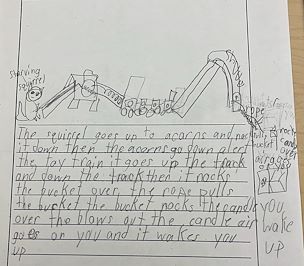 starving
squirrel
rope
The squirrel goes up to acorns and nocks
it down then the acorns go down alert
the toy train it goes up the track
and down the track then it rocks
the bucket over, the rope pulls
the bucket the bucket nocks the candle
over the blows out the candle air
goes on you and it wakes you
up
nocks
candle
over
air goes
you
wake
up